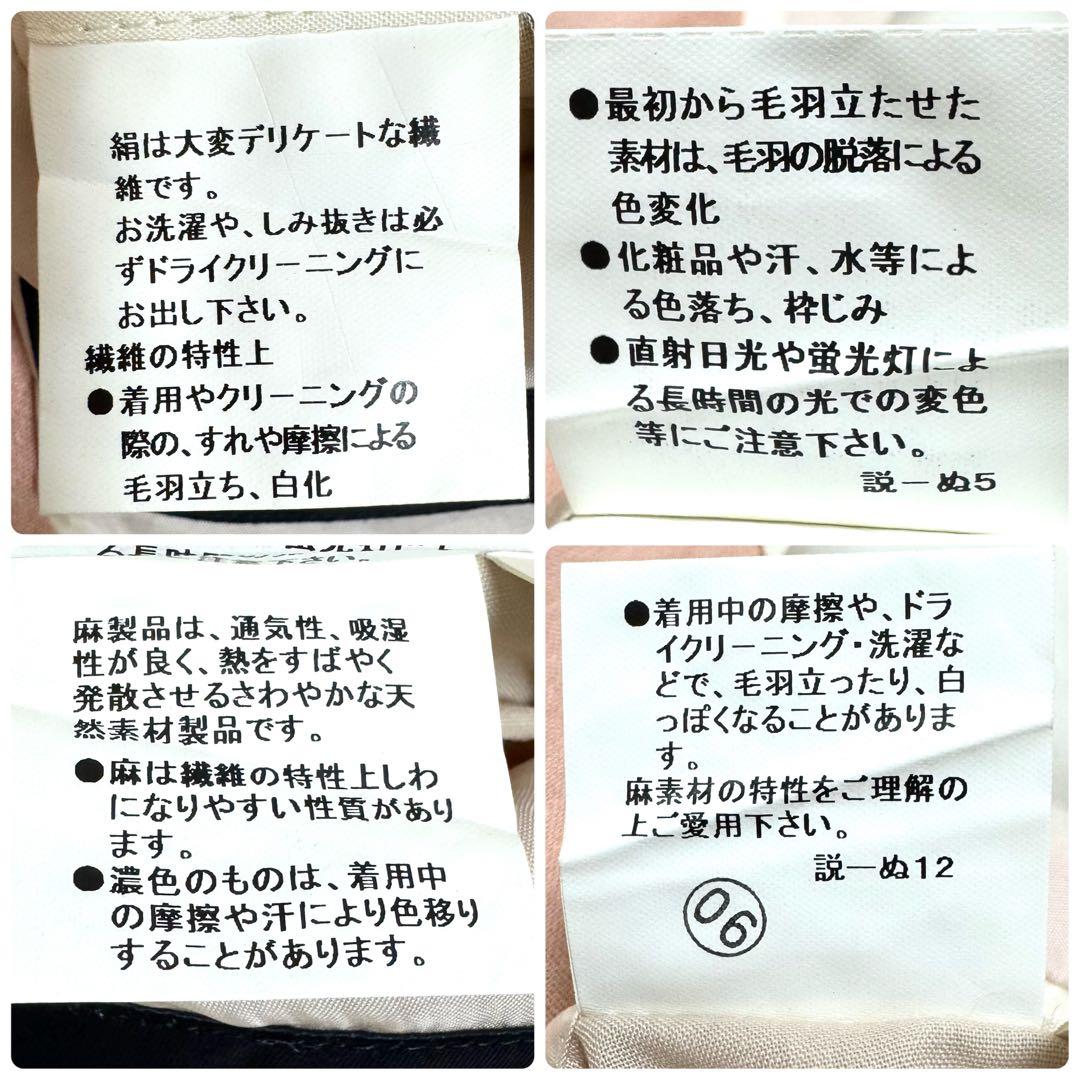 絹は大変デリケートな繊
維です。
お洗濯や、しみ抜きは必
ずドライクリーニングに
お出し下さい。
繊維の特性上
●着用やクリーニングの
際の、すれや摩擦による
毛羽立ち、白化
●最初から毛羽立たせた
素材は、毛羽の脱落による
色変化
●化粧品や汗、水等によ
る色落ち、枠じみ
●直射日光や蛍光灯によ
る長時間の光での変色
等にご注意下さい。
説ーぬ5
麻製品は、通気性、吸湿
性が良く、熱をすばやく
発散させるさわやかな天
然素材製品です。
●麻は繊維の特性上しわ
になりやすい性質があり
ます。
●濃色のものは、着用中
の摩擦や汗により色移り
することがあります。
●着用中の摩擦や、ドラ
イクリーニング・洗濯な
どで、毛羽立ったり、白
っぽくなることがありま
す。
麻素材の特性をご理解の
上ご愛用下さい。
説ーぬ12
06